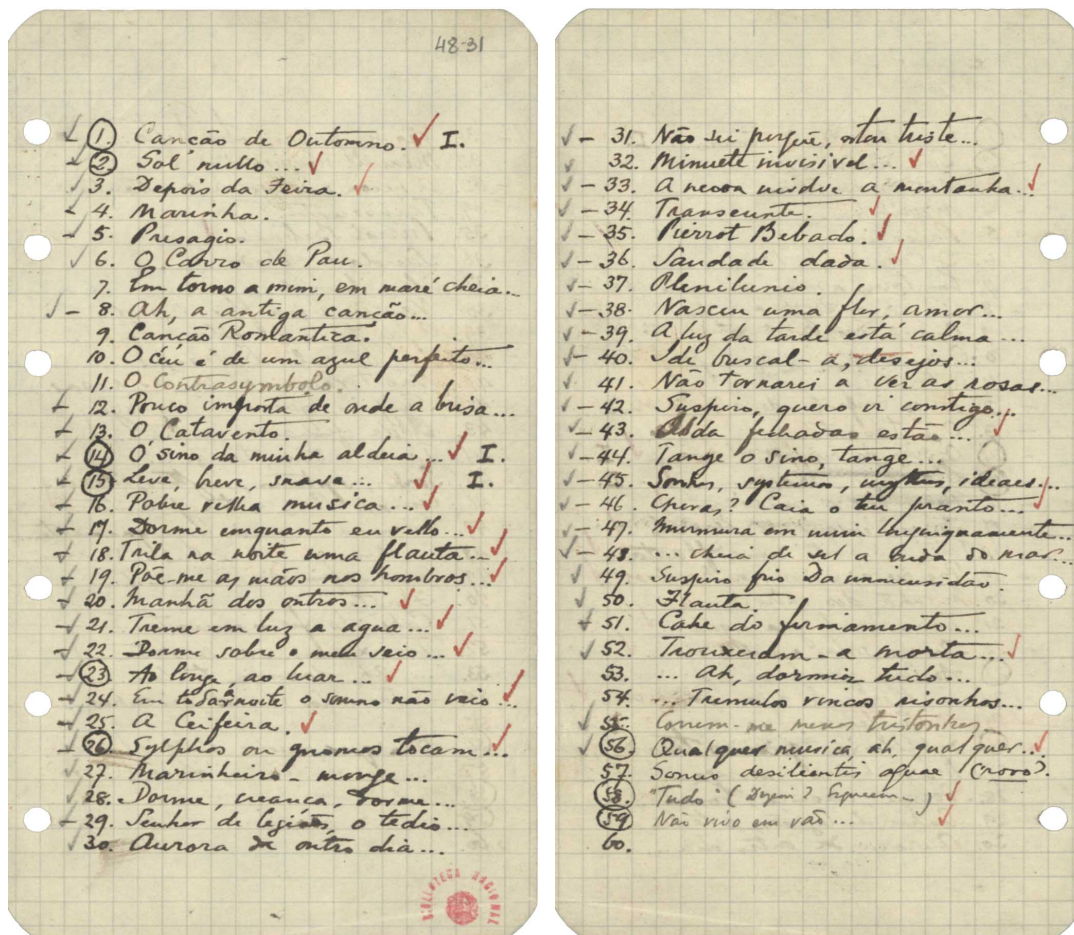 48-31
1. Canção de Outomno. I.
2. Sol nullo...
3. Depois da Feira.
4. Marinha.
5. Presagio.
6. O Carro de Pau.
7. Em torno a mim, em maré cheia...
8. Ah, a antiga canção...
9. Canção Romantica.
10. O céu é de um azul perfeito...
11. O Contrasymbolo.
12. Pouco importa de onde a brisa...
13. O Catavento.
14. O sino da minha aldeia... I.
15. Leve, breve, suave... I.
16. Pobre velha musica...
17. Dorme emquanto eu vello...
18. Trila na noite uma flauta...
19. Põe-me as mãos nos hombros...
20. Manhã dos outros...
21. Treme em luz a agua...
22. Dorme sobre o meu seio...
23. Ao longe, ao luar...
24. Em toda a noite o somno não veio...
25. A Ceifeira.
26. Sylphos ou gnomos tocam...
27. Marinheiro-monge...
28. Dorme, creança, dorme...
29. Senhor de legiões, o tedio...
30. Aurora de outro dia...
BIBLIOTECA NACIONAL
31. Não sei porquê, estou triste...
32. Minuete invisivel...
33. A nevoa involve a montanha...
34. Transeunte.
35. Pierrot Bebado.
36. Saudade dada.
37. Plenilunio.
38. Nasceu uma flor, amor...
39. A luz da tarde está calma...
40. Ide buscal-a, desejos...
41. Não tornarei a ver as rosas...
42. Suspiro, quero ir comtigo...
43. fechadas estão...
44. Tange o sino, tange...
45. Sonhos, systemas, mythos, ideaes...
46. Choras? Caia o teu pranto...
47. Murmura em mim longinquamente...
48. ...cheia de sol a onda do mar...
49. Suspiro frio Da immensidão
50. Flauta.
51. Cahe do firmamento...
52. Trouxeram-a morta...
53. ... Ah, dormir tudo...
54. ...Tremulos vincos risonhos...
55. Correm-me menos tristonhos
56. Qualquer musica, ah, qualquer...
57. Somno desilientis aquae (novo).
58. "Tudo"
59. Não vivo em vão...
60.